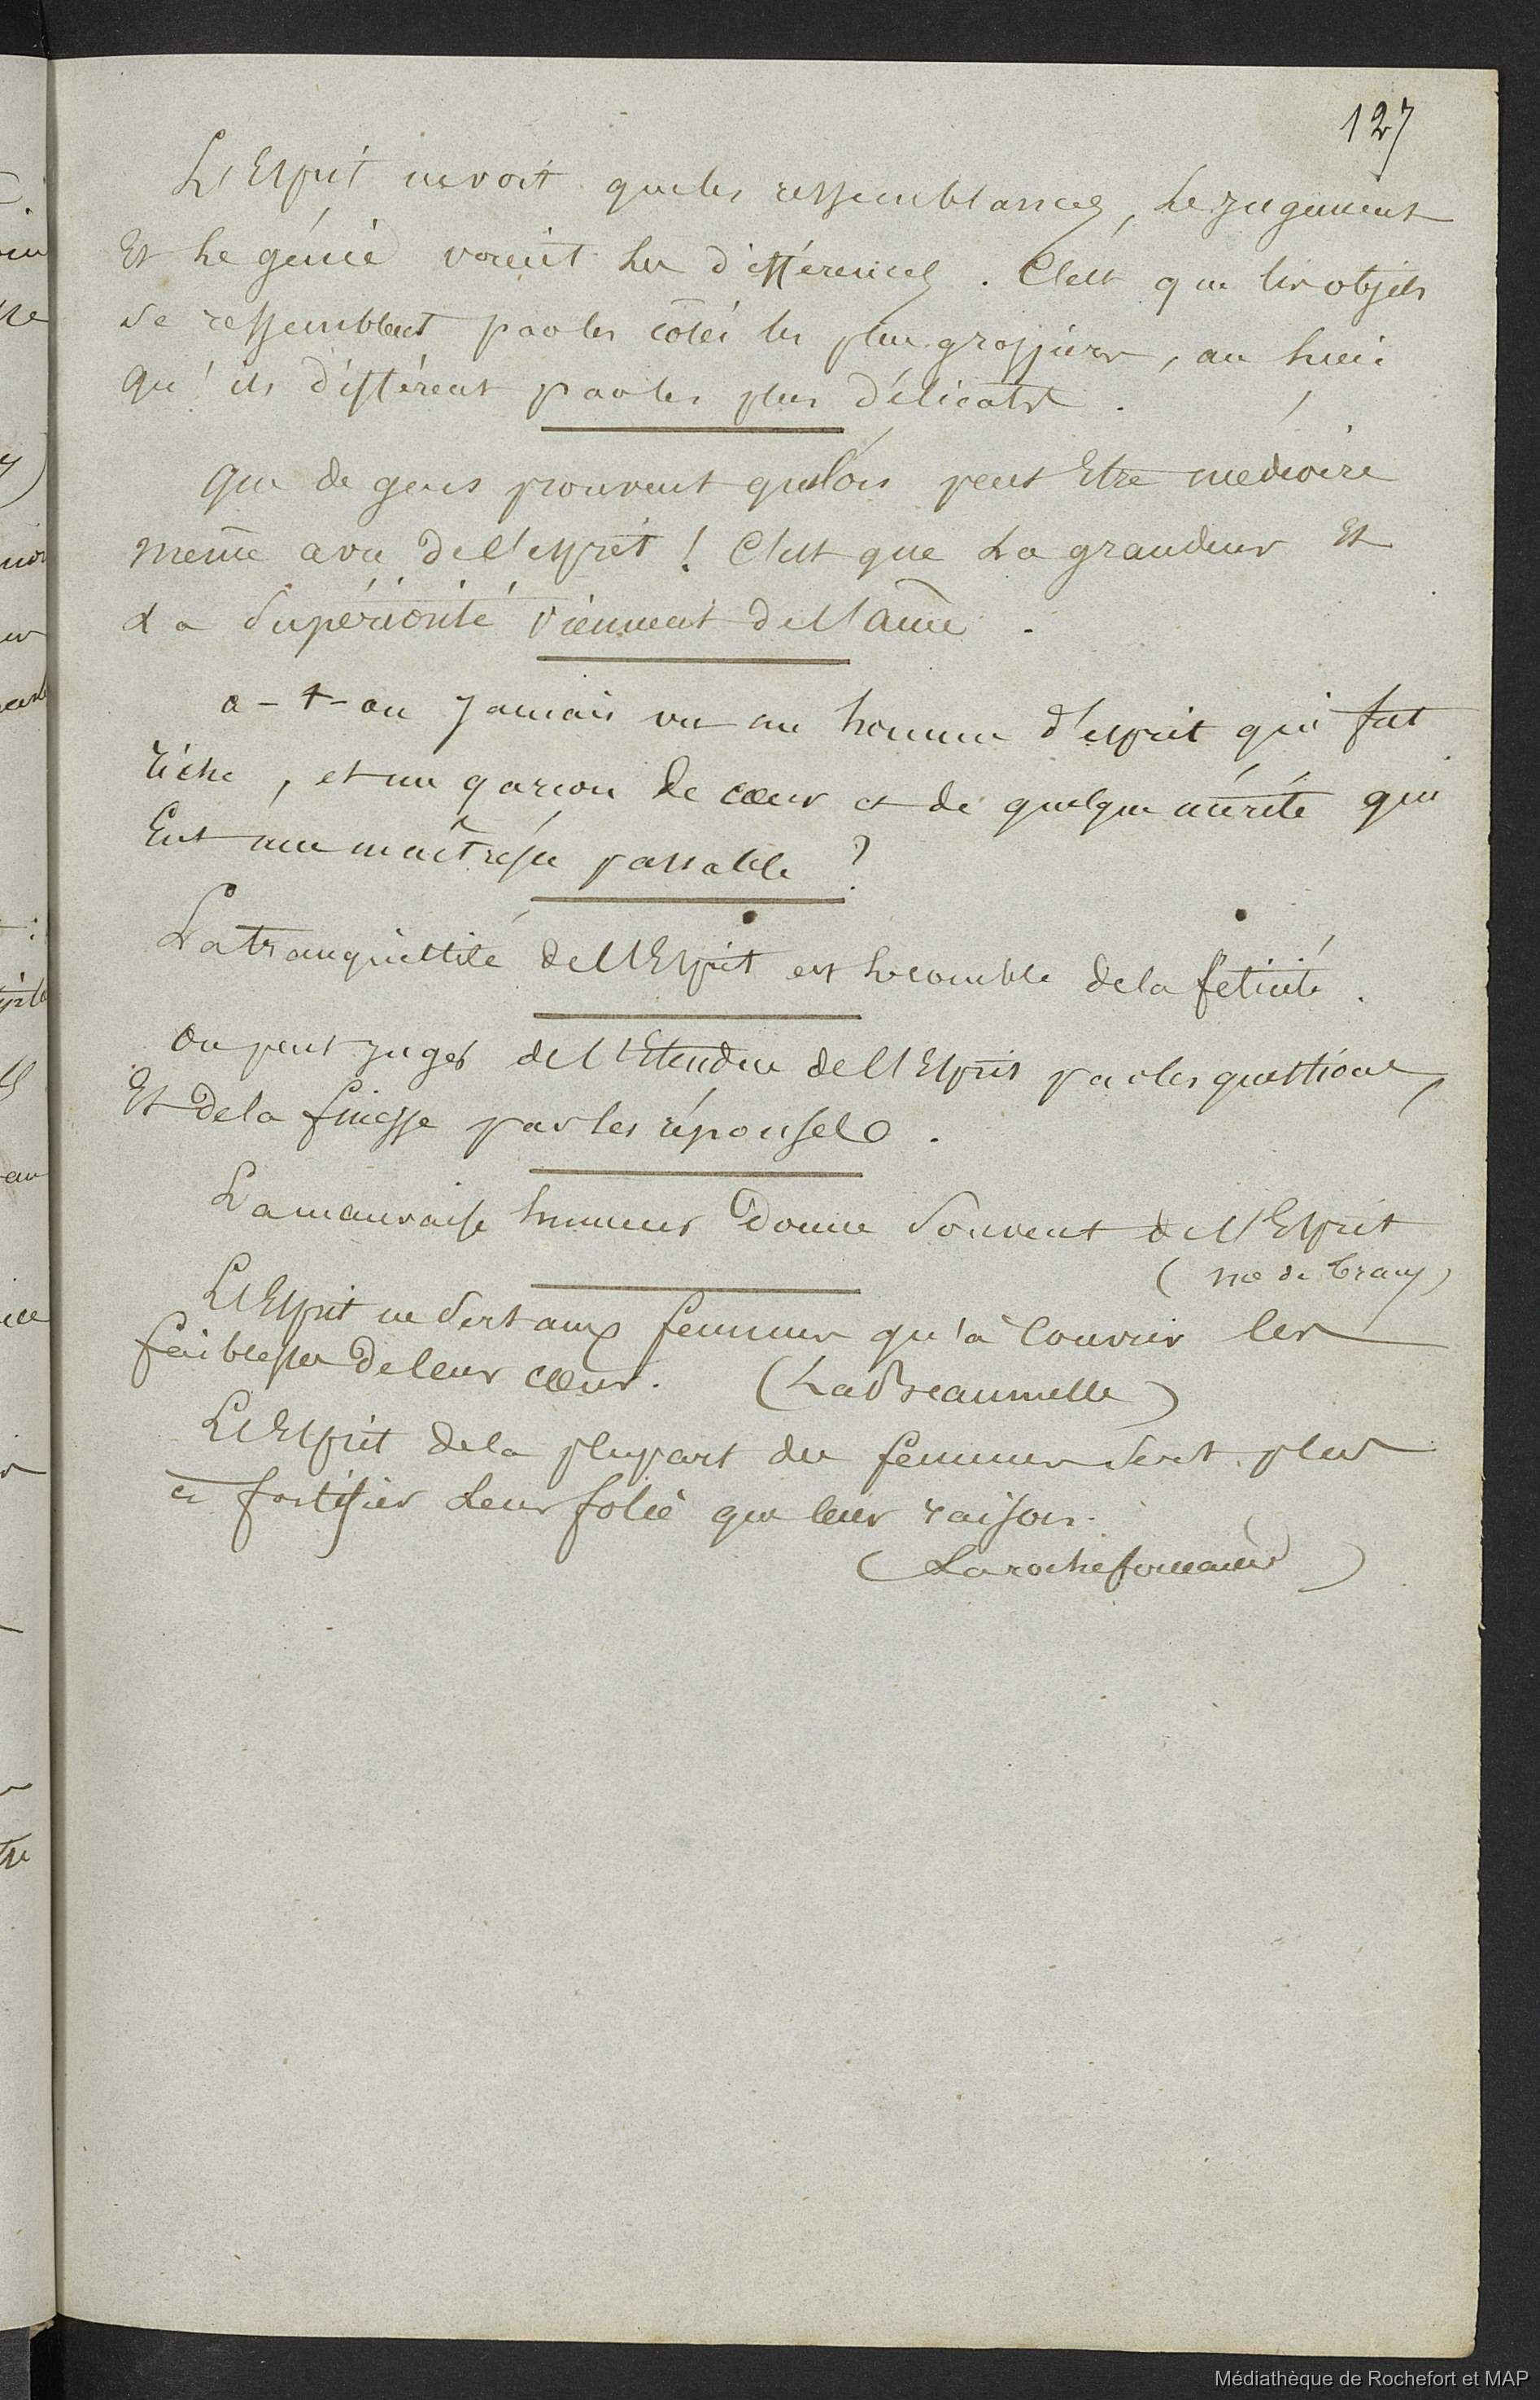 127
L'Esprit ne voit que les ressemblances, le jugement
Et le génie voient les différences. C'est que les objets
se ressemblent par les côtés les plus grossiers, au lieu
qu'ils différent par les plus délicats.
Que de gens prouvent qu'on peut Etre médiocre
même avec de l'esprit ! C'est que La grandeur Et
La Supériorité viennent de l'âme.
a-t-on jamais vu un homme d'esprit qui fut
riche, et un garçon de cœur et de quelque mérite qui
Eut une maîtresse passable ?
La tranquillité de l'Esprit est le comble de la félicité.
On peut juger de l'Etendue de l'Esprit par les questions,
Et de la finesse par les réponses.
La mauvaise humeur Donne Souvent de l'Esprit
(Me de Tracy)
L'Esprit ne Sert aux femmes qu'à Couvrir les
faiblesses de leur cœur. (La Beaumelle)
L'Esprit de la plupart des femmes Sert plus
à fortifier Leur folie que leur raison.
(Larochefoucauld)
Médiathèque de Rochefort et MAP